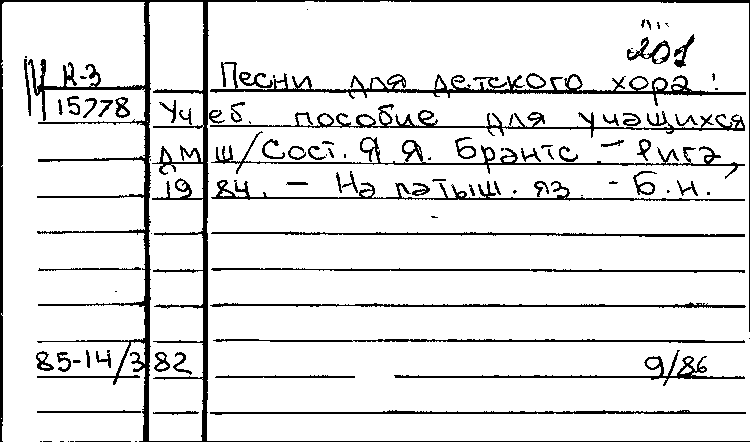 201
К-3 Песни для детского хора:
15778 Учеб. пособие для учащихся
ДМШ/Сост. Я Я. Брантс. – Рига,
1984. – На латыш. яз – Б.н.
85-14/382 9/86